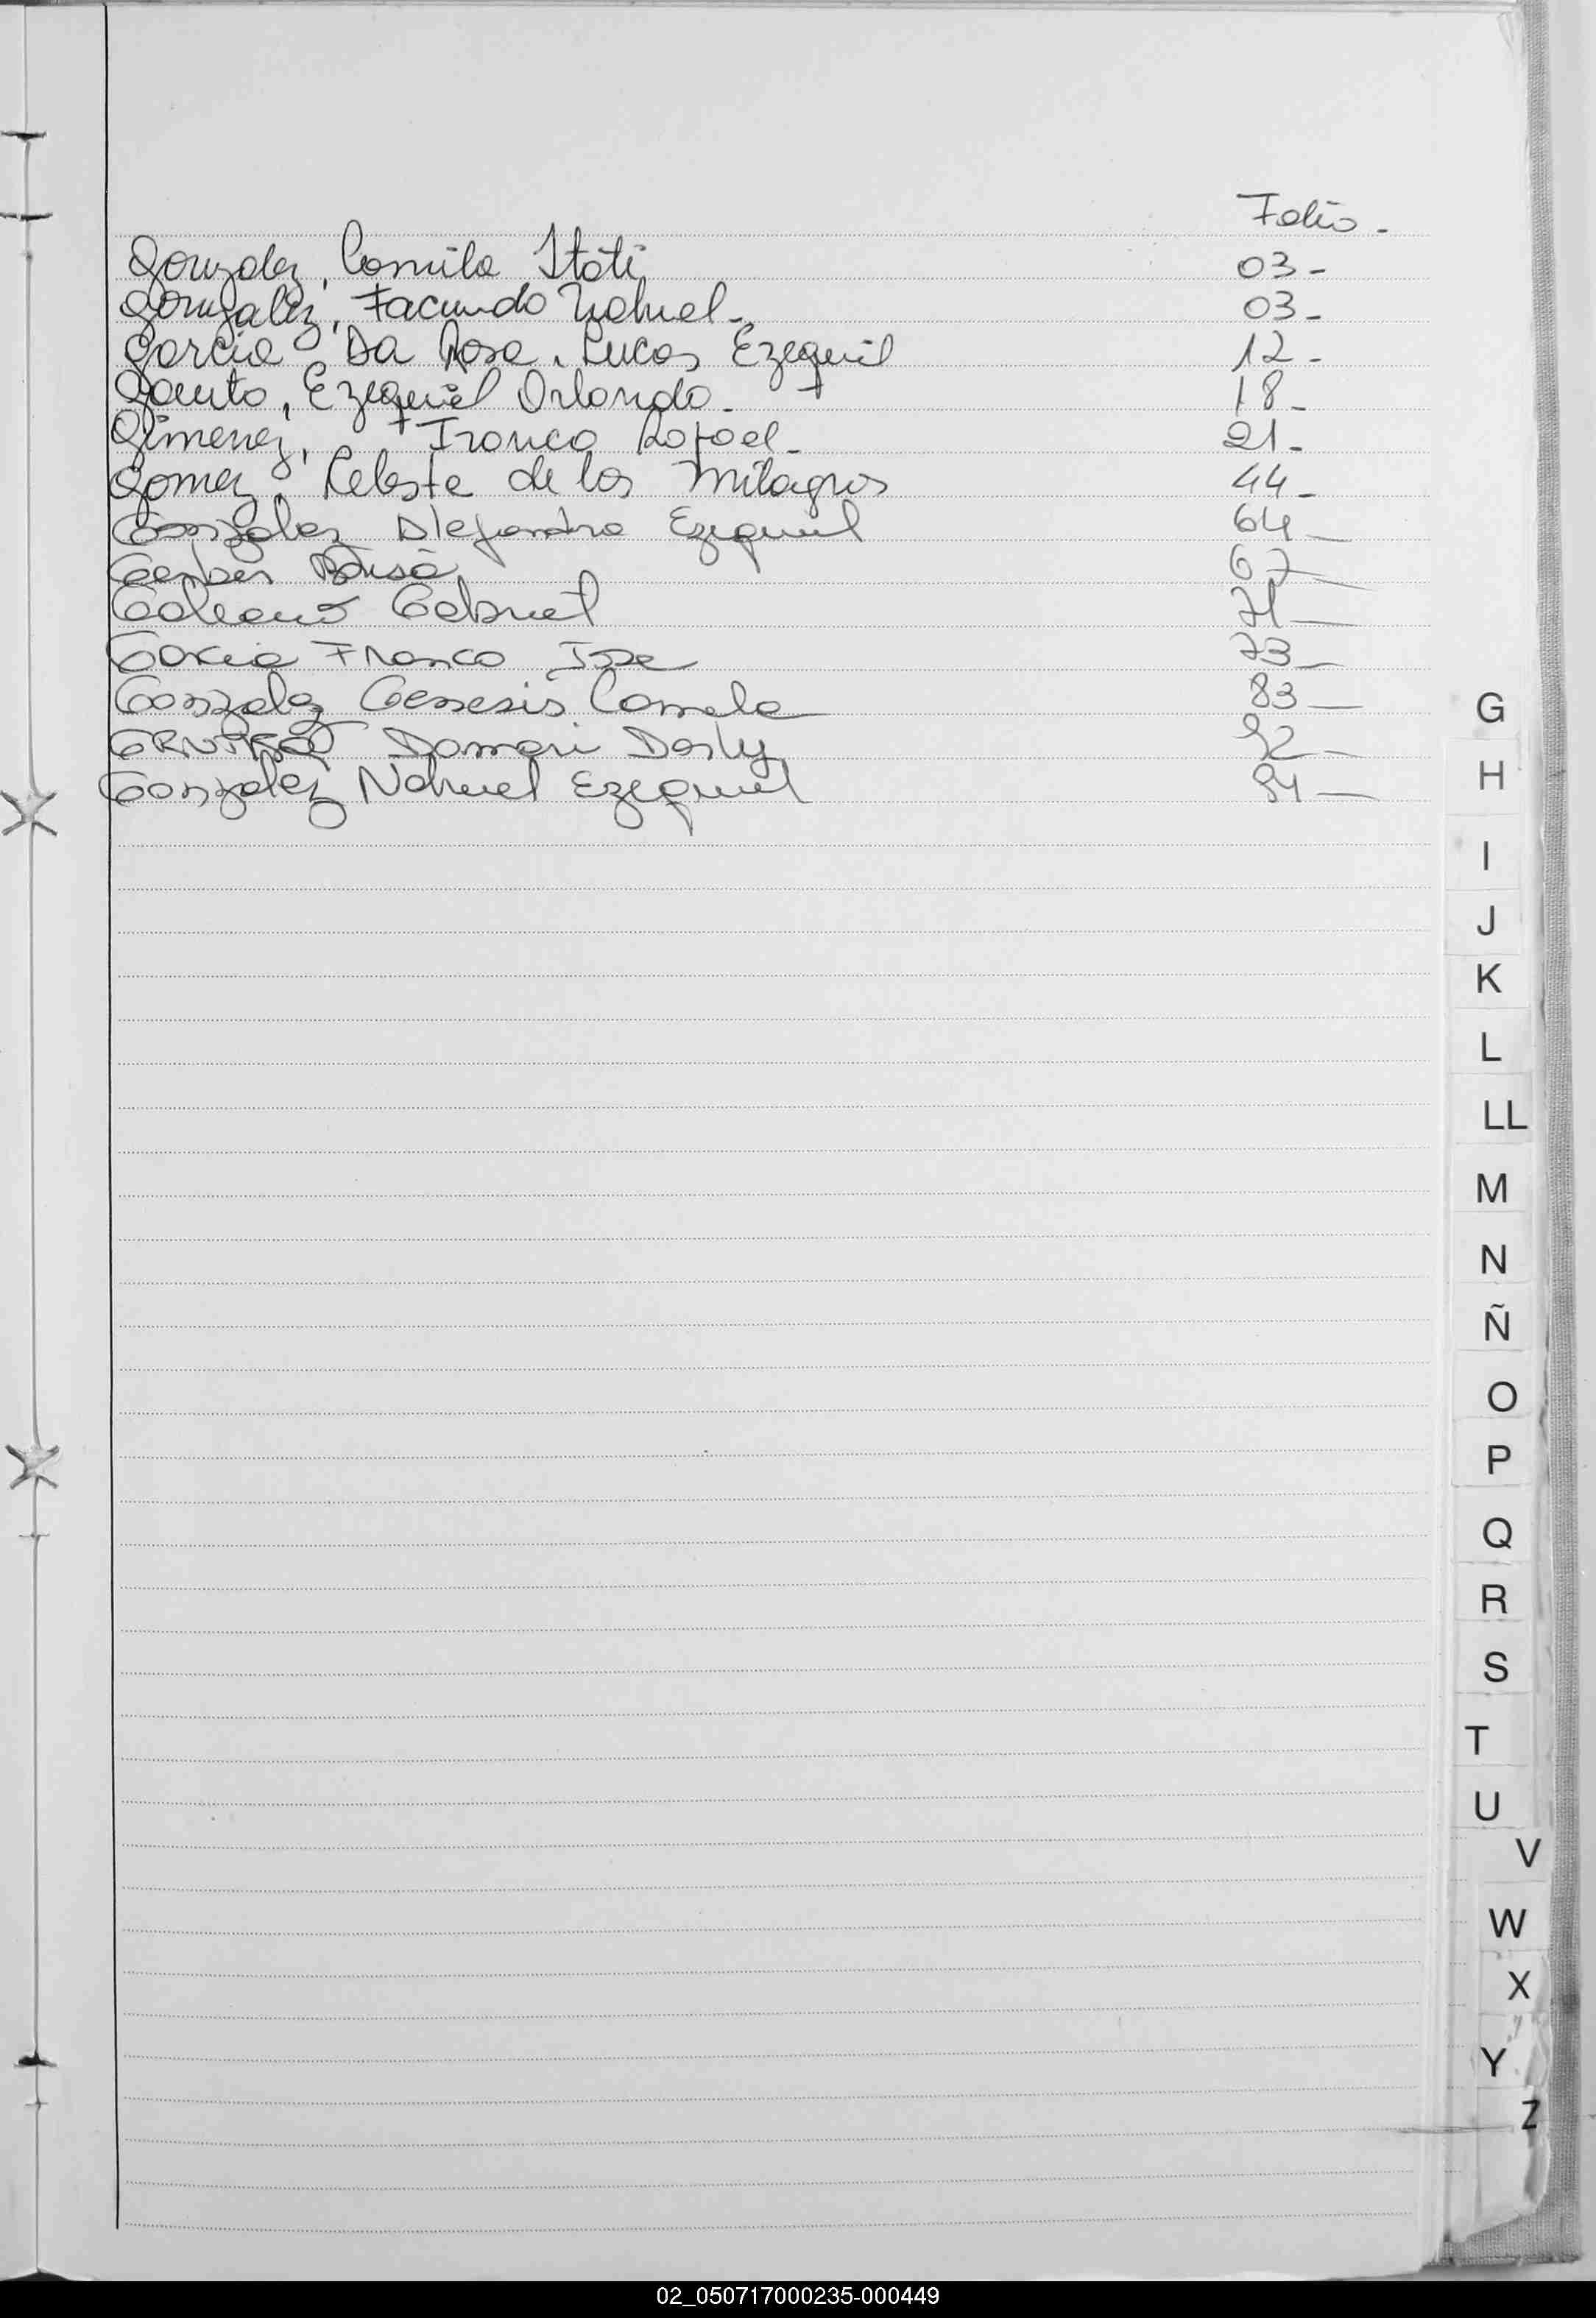 Folio -
Gonzalez, Camila Itati 03 -
Gonzalez, Facundo Nahuel - 03 -
Garcia Da Rosa, Lucas Ezequiel 12 -
Gauto, Ezequiel Orlando - 18 -
Gimenez, Franco Rafael - 21 -
Gomez, Celeste de los Milagros 44 -
Gonzalez Alejandro Ezequiel 64 -
67 -
Galeano Gabriel 71 -
Garcia Franco Jose 73 -
Gonzalez Genesis Camila 83 -
92 -
Gonzalez Nahuel Ezequiel 94 -
G
H
I
J
K
L
LL
M
N
Ñ
O
P
Q
R
S
T
U
V
W
X
Y
Z
02_050717000235-000449